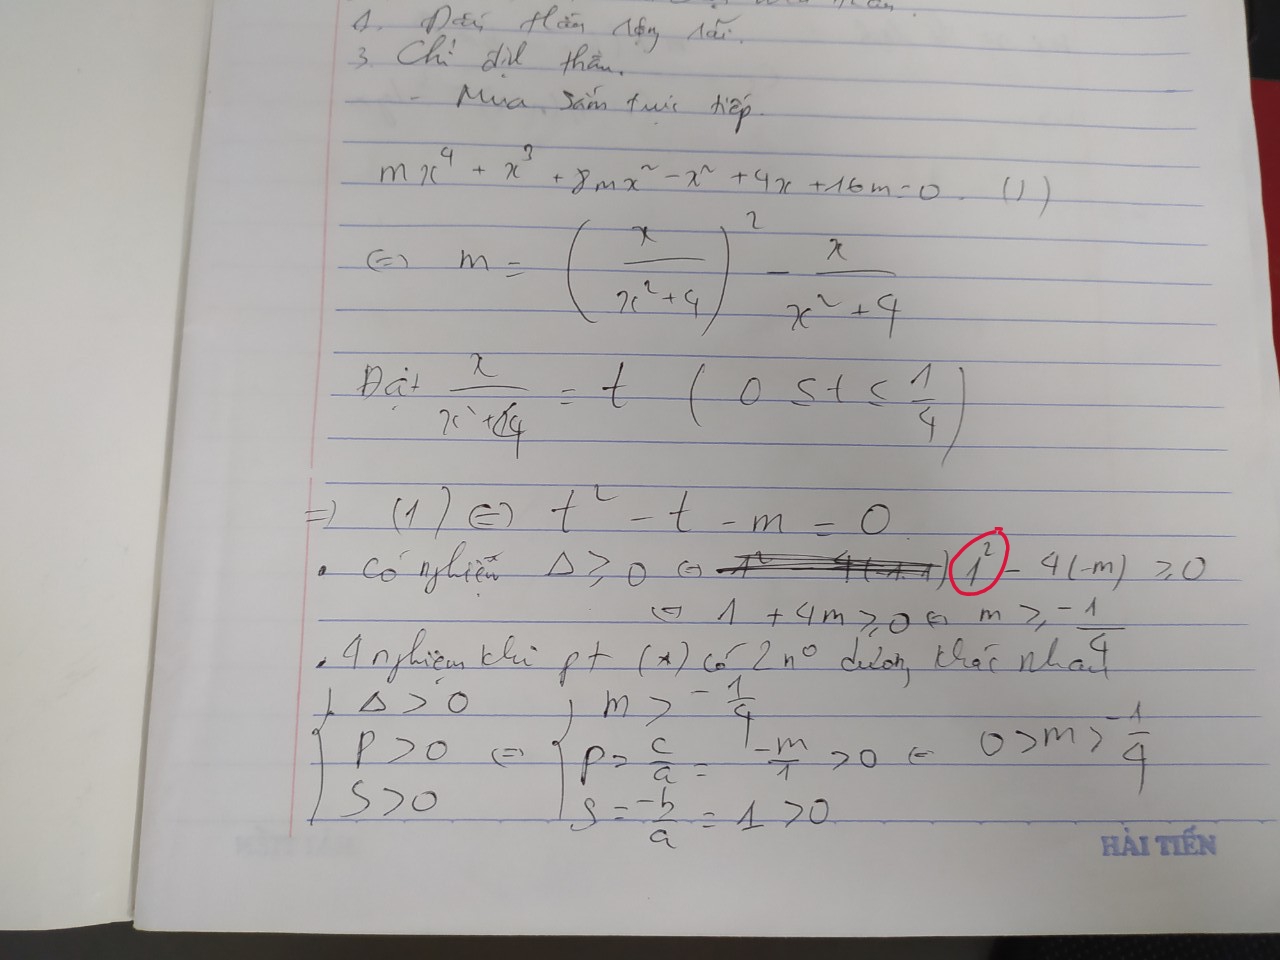 1. Đấu thầu rộng rãi.
3. Chỉ định thầu.
- Mua sắm trực tiếp.
mx⁴ + x³ + 8mx² - x² + 4x + 16m = 0. (1)
⇔ m = (x/(x²+4))² - x/(x²+4)
Đặt x/(x²+4) = t ( 0 ≤ t ≤ 1/4 )
⇒ (1) ⇔ t² - t - m = 0.
• có nghiệm Δ ≥ 0 ⇔ 1² - 4(-m) ≥ 0
⇔ 1 + 4m ≥ 0 ⇔ m ≥ -1/4
• 4 nghiệm khi pt (*) có 2 n⁰ dương khác nhau
Δ > 0 m > -1/4
P > 0 ⇔ P = c/a = -m/1 > 0 ⇔ 0 > m > -1/4
S > 0 S = -b/a = 1 > 0
HẢI TIẾN